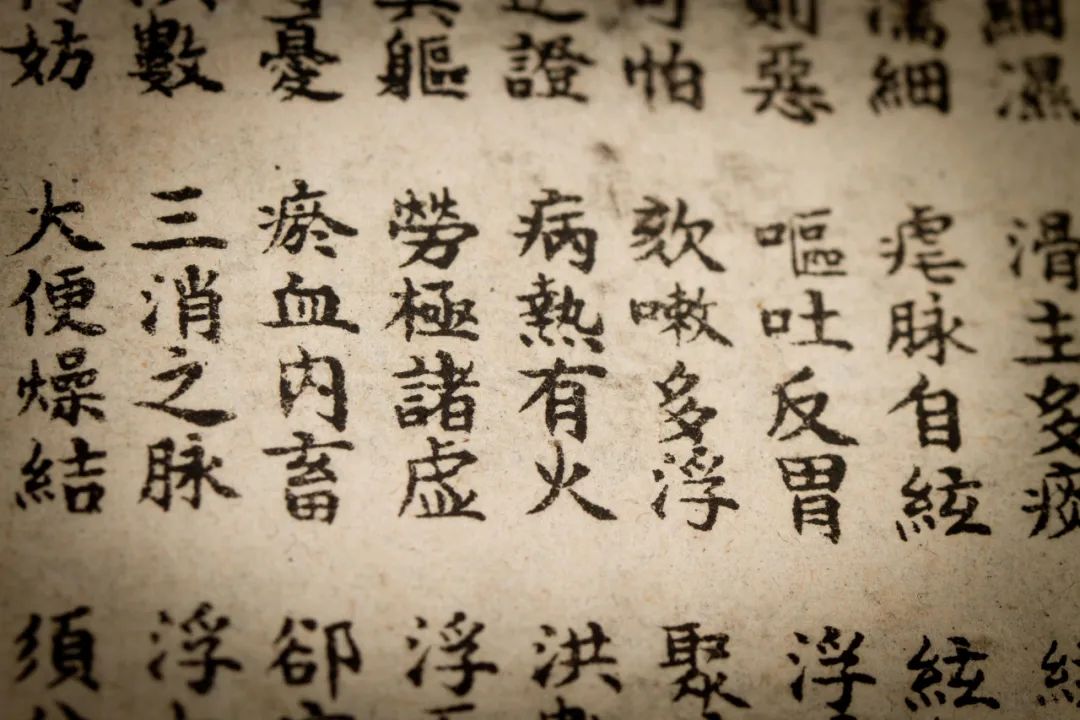 細濕 滑主多痰
濡細 疟脉自絃 絃
則惡 嘔吐反胃 浮
可怕 欬嗽多浮 聚
證 病熱有火 洪
其軀 勞極諸虛 浮
憂 瘀血内畜 卻
數 三消之脉 浮
妨 大便燥結 須